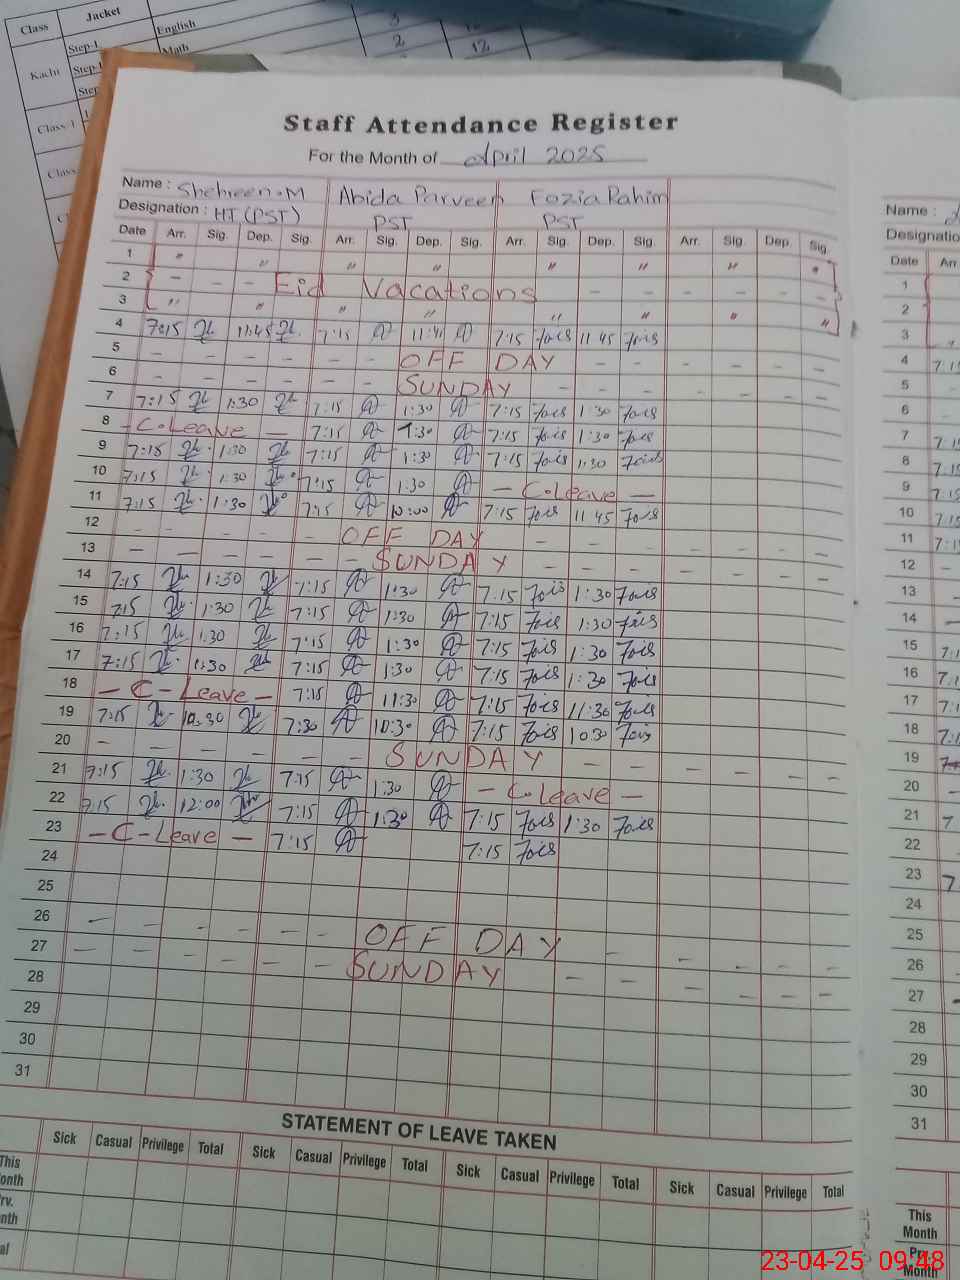 Class Jacket
Step-1 English 3
Kachi Step- Math 2 12
Step
Class-1
Class
Staff Attendance Register
For the Month of April 2025
Name : Shehreen.M Abida Parveen Fozia Rahim
Designation : HT (PST) PST PST
Date Arr. Sig. Dep. Sig. Arr. Sig. Dep. Sig. Arr. Sig. Dep. Sig. Arr. Sig. Dep. Sig.
1 " " " " " " " "
2 - - - Eid Vacations - - - - - -
3 " " " " " " " "
4 7:15 11:45 7:15 11:45 7:15 Fozia 11 45 Fozia
5 - - - - - OFF DAY - - - - - -
6 - - - - - - SUNDAY - - - - - -
7 7:15 1:30 7:15 1:30 7:15 Fozia 1:30 Fozia
8 - C.Leave 7:15 1:30 7:15 Fozia 1:30 Fozia
9 7:15 1:30 7:15 1:30 7:15 Fozia 1:30 Fozia
10 7:15 1:30 7:15 1:30 - C.Leave -
11 7:15 1:30 7:15 10:00 7:15 Fozia 11 45 Fozia
12 - - - - - OFF DAY - - - - - -
13 - - - - - SUNDAY - - - - - -
14 7:15 1:30 7:15 1:30 7:15 Fozia 1:30 Fozia
15 7:15 1:30 7:15 1:30 7:15 Fozia 1:30 Fozia
16 7:15 1:30 7:15 1:30 7:15 Fozia 1:30 Fozia
17 7:15 1:30 7:15 1:30 7:15 Fozia 1:30 Fozia
18 - C - Leave - 7:15 11:30 7:15 Fozia 11:30 Fozia
19 7:15 10:30 7:30 10:30 7:15 Fozia 10 30 Fozia
20 - - - - - - SUNDAY - - - - - -
21 7:15 1:30 7:15 1:30 - C.Leave -
22 7:15 12:00 7:15 1:30 7:15 Fozia 1:30 Fozia
23 - C - Leave - 7:15 7:15 Fozia
24
25
26 - - - - - - OFF DAY - - - - -
27 - - - - - - SUNDAY - - - - -
28
29
30
31
STATEMENT OF LEAVE TAKEN
Sick Casual Privilege Total Sick Casual Privilege Total Sick Casual Privilege Total Sick Casual Privilege Total
This
onth
rv.
nth
al
Name :
Designatio
Date Arr
1
2
3
4 7:15
5 -
6 -
7 7:15
8 7:15
9 7:15
10 7:15
11 7:15
12 -
13 -
14
15
16
17
18
19
20 -
21
22
23
24
25
26 -
27 -
28
29
30
31
This
Month
Prv.
Month
23-04-25 09:48